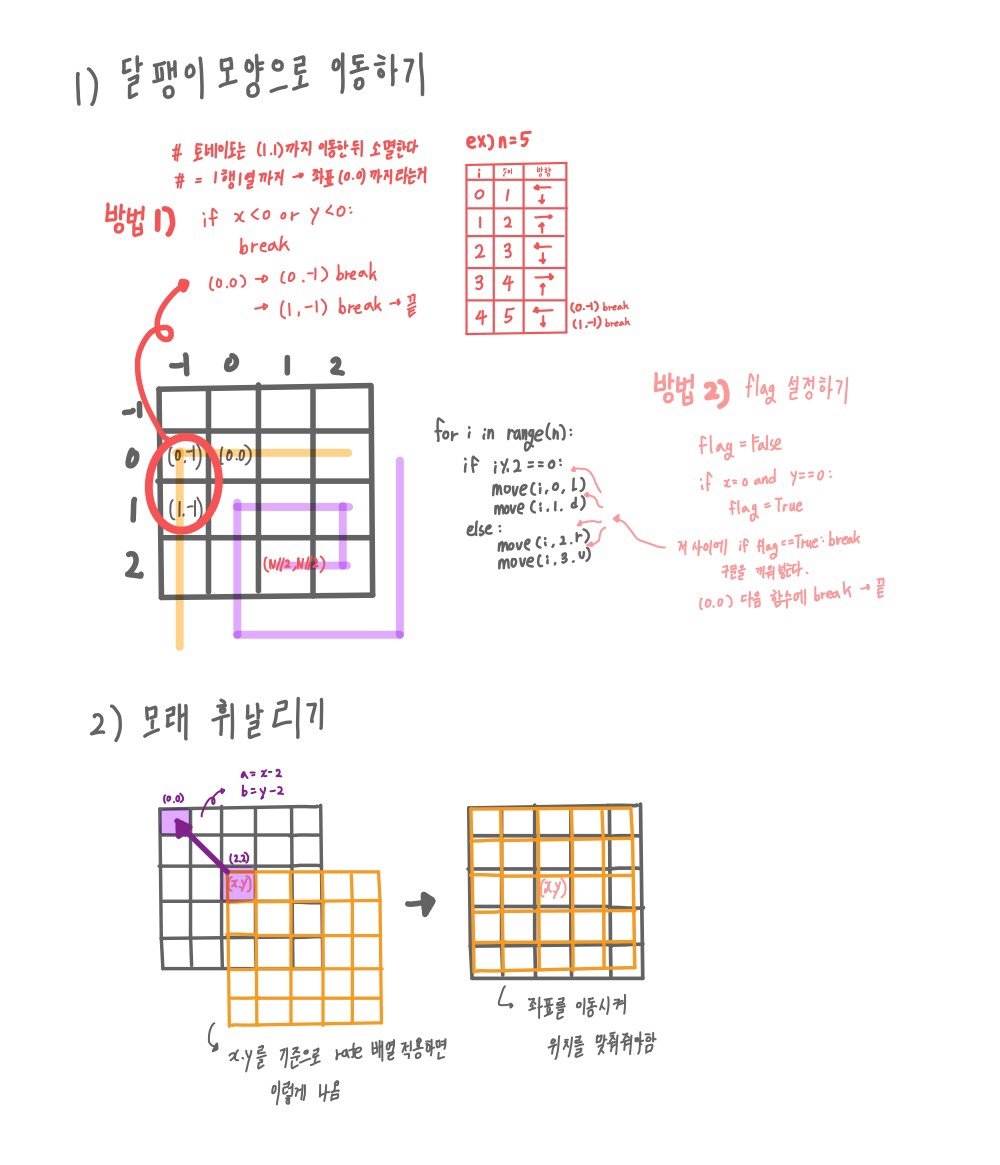 1) 달팽이 모양으로 이동하기
# 토네이도는 (1.1)까지 이동한 뒤 소멸한다
# = 1행1열까지 → 좌표(0.0)까지라는거
방법 1) if x<0 or y<0:
break
(0.0) → (0.-1) break
→ (1,-1) break → 끝
ex) n=5
i 길이 방향
0 1 ← ↓
1 2 → ↑
2 3 ← ↓
3 4 → ↑
4 5 ← ↓
(0.-1) break
(1,-1) break
-1 0 1 2
-1
0 (0,-1) (0.0)
1 (1.-1)
2 (N//2,N//2)
for i in range(n):
if i%2==0:
move(i,0,L)
move(i,1.d)
else:
move(i,2.r)
move(i,3.u)
방법 2) flag 설정하기
flag = False
if x=0 and y==0:
flag = True
저 사이에 if flag==True: break
구문을 끼워 넣는다.
(0.0) 다음 함수에 break → 끝
2) 모래 휘날리기
a=x-2
b=y-2
(0.0)
(2.2)
(x.y)
x.y를 기준으로 rate 배열 적용하면
이렇게 나옴
→
(x.y)
좌표를 이동시켜
위치를 맞춰줘야함